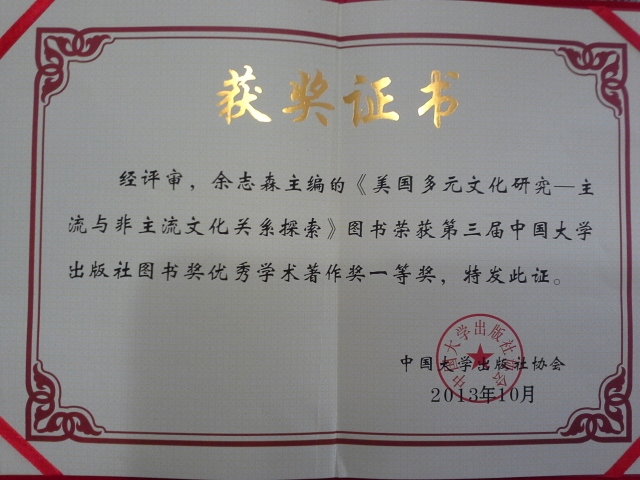 获奖证书
经评审，余志森主编的《美国多元文化研究—主
流与非主流文化关系探索》图书荣获第三届中国大学
出版社图书奖优秀学术著作奖一等奖，特发此证。
中国大学出版社协会
中国大学出版社协会
2013年10月